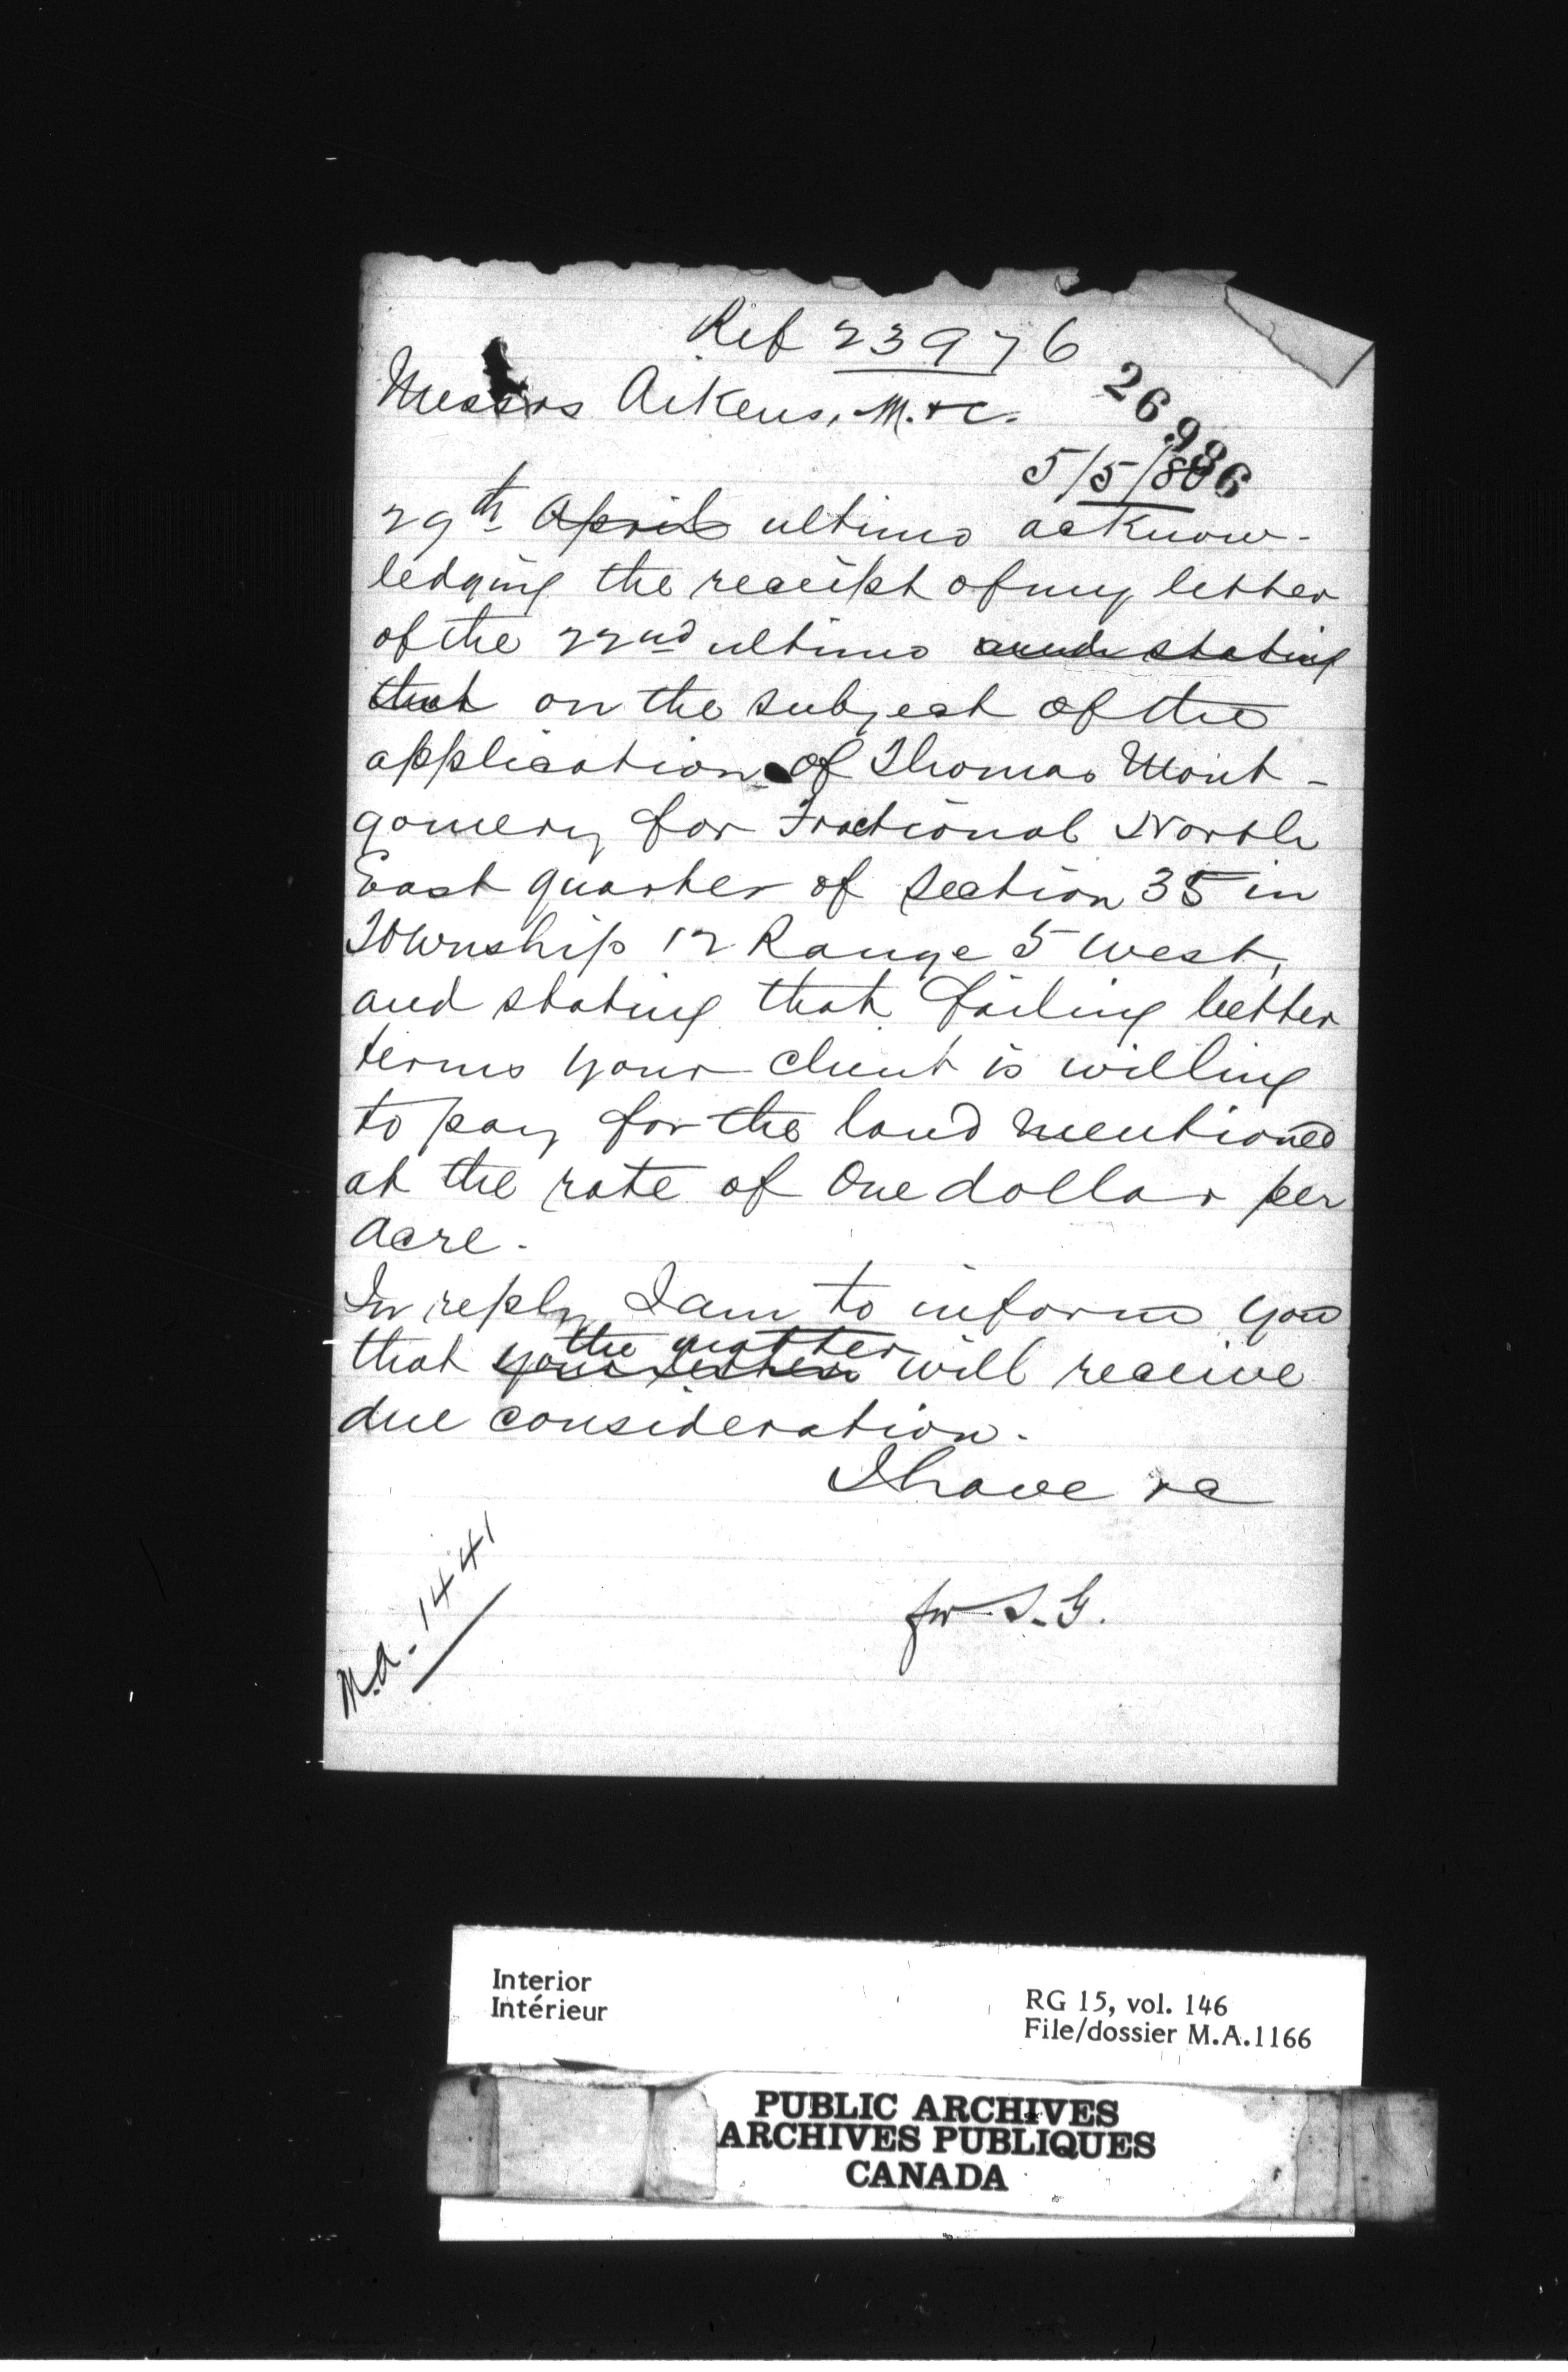 Ref 23976
Messrs Aikens, M. & C.
26986
5/5/86
29th April ultimo acknow-
ledging the receipt of my letter
of the 22nd ultimo and stating
that on the subject of the
application of Thomas Mont-
gomery for Fractional North
East quarter of section 35 in
Township 12 Range 5 West,
and stating that failing better
terms your client is willing
to pay for the land mentioned
at the rate of One dollar per
acre.
In reply I am to inform you
the matter
that your letter will receive
due consideration.
I have &c
for S. G.
M.A. 1441
Interior
Intérieur
RG 15, vol. 146
File/dossier M.A.1166
PUBLIC ARCHIVES
ARCHIVES PUBLIQUES
CANADA